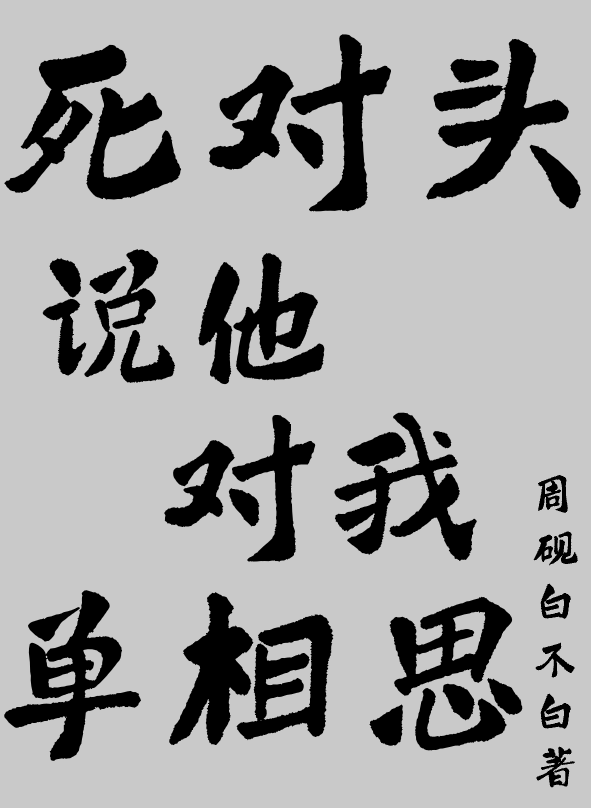 死对头
说他
对我
单相思
周砚白不白著